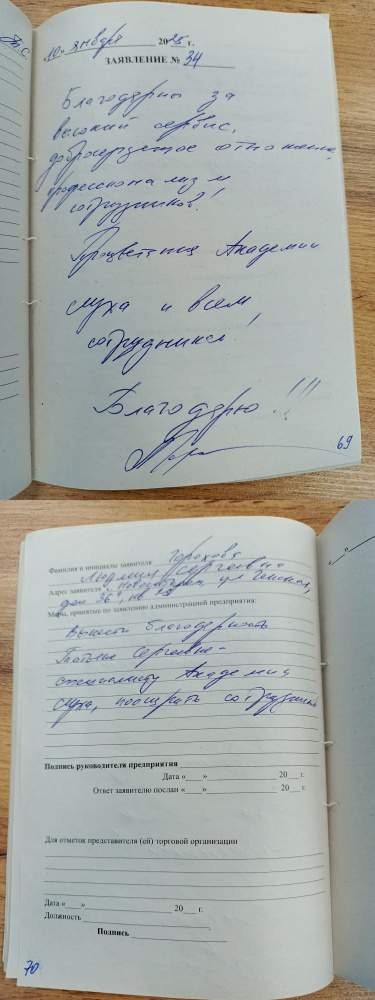 «10» января 2025 г.
ЗАЯВЛЕНИЕ № 34
Благодарны за
высокий сервис,
добросердечное отношение,
профессионализм
сотрудников!
Процветания Академии
слуха и всем
сотрудникам!
Благодарю!!!
69
Фамилия и инициалы заявителя Горохова
Людмила Сергеевна
Адрес заявителя г. Новосибирск, ул.
дом 36
Меры, принятые по заявлению администрацией предприятия:
Вынести благодарность
Татьяне Сергеевне -
специалисту Академии
слуха, поощрить сотрудника
Подпись руководителя предприятия
Дата «___» ______ 20___ г.
Ответ заявителю послан «___» ______ 20___ г.
Для отметок представителя (ей) торговой организации
Дата «___» ______ 20___ г.
Должность
Подпись
70